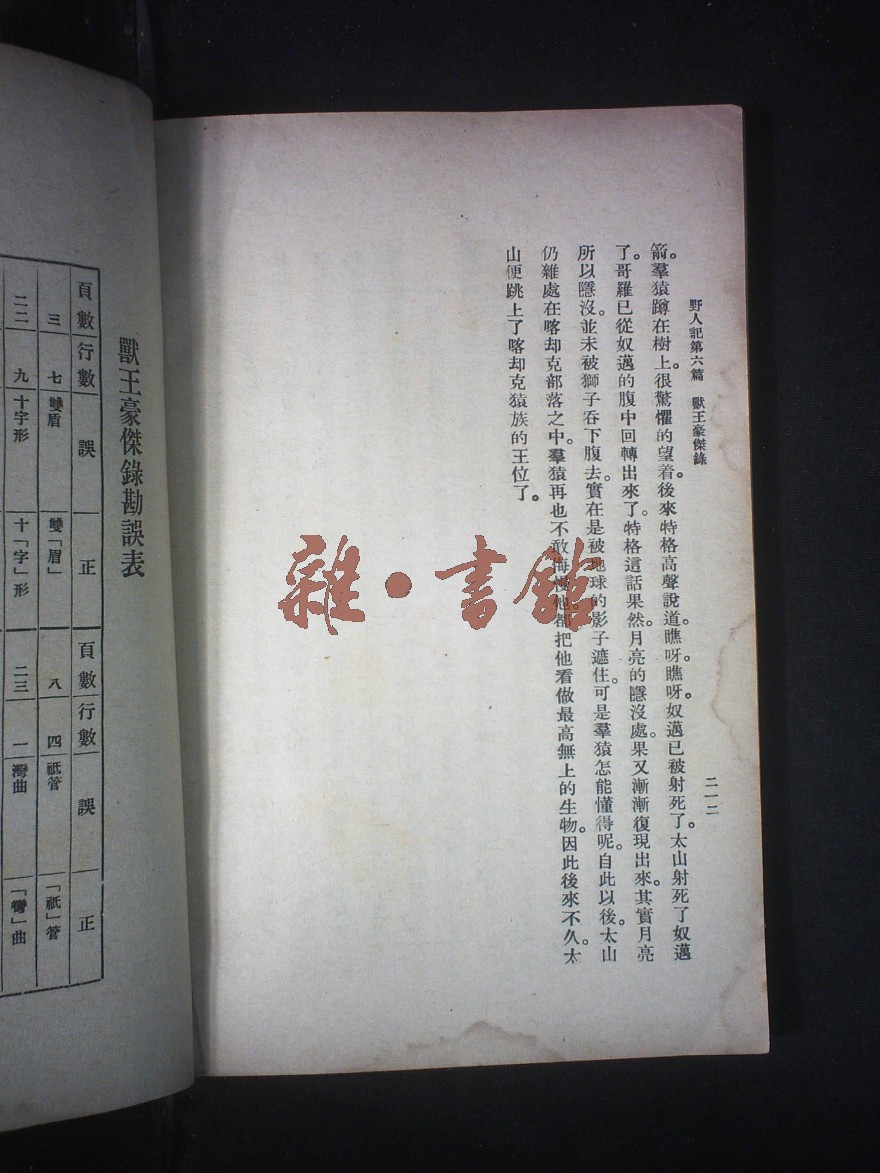 野人記第六篇　獸王豪傑錄
二一二
箭。羣猿蹲在樹上。很驚懼的望着。後來特格高聲說道。瞧呀瞧呀。奴邁已被射死了。太山射死了奴邁
了。哥羅已從奴邁的腹中回轉出來了。特格這話果然。月亮的隱沒處。果又漸漸復現出來。其實月亮
所以隱沒。並未被獅子吞下腹去。實在是被地球的影子遮住。可是羣猿怎能懂得呢。自此以後。太山
仍雜處在喀却克部落之中。羣猿再也不敢侮慢他。都把他看做最高無上的生物。因此後來不久。太
山便跳上了喀却克猿族的王位了。
雜·書館
獸王豪傑錄勘誤表
頁數 行數 誤 正 頁數 行數 誤 正
三 七 雙盾 雙「眉」 八 四 祇管 「祇」管
二二 九 十字形 十「字」形 二三 一 灣曲 「彎」曲